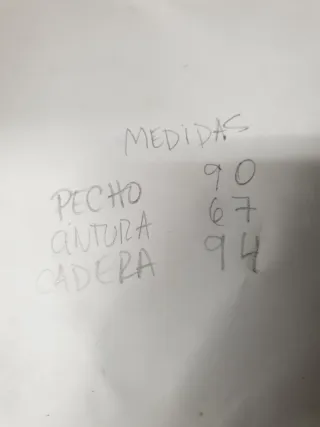 MEDIDAS
PECHO 90
CINTURA 67
CADERA 94